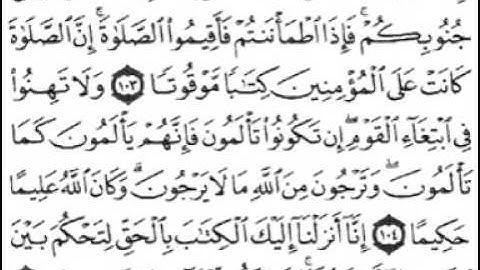 جُنُوبِكُمْ ۚ فَإِذَا ٱطْمَأْنَنتُمْ فَأَقِيمُوا۟ ٱلصَّلَوٰةَ ۚ إِنَّ ٱلصَّلَوٰةَ
كَانَتْ عَلَى ٱلْمُؤْمِنِينَ كِتَـٰبًا مَّوْقُوتًا ١٠٣ وَلَا تَهِنُوا۟
فِى ٱبْتِغَآءِ ٱلْقَوْمِ ۖ إِن تَكُونُوا۟ تَأْلَمُونَ فَإِنَّهُمْ يَأْلَمُونَ كَمَا
تَأْلَمُونَ ۖ وَتَرْجُونَ مِنَ ٱللَّهِ مَا لَا يَرْجُونَ ۗ وَكَانَ ٱللَّهُ عَلِيمًا
حَكِيمًا ١٠٤ إِنَّآ أَنزَلْنَآ إِلَيْكَ ٱلْكِتَـٰبَ بِٱلْحَقِّ لِتَحْكُمَ بَيْنَ